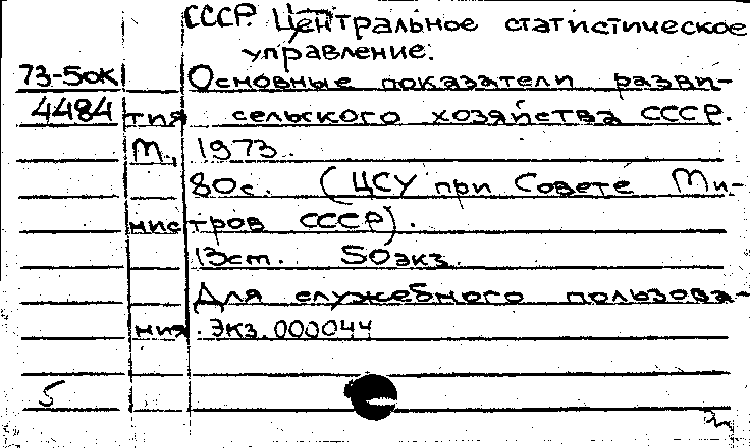 СССР. Центральное статистическое
управление.
73-5ок Основные показатели разви-
4484 тия сельского хозяйства СССР.
М., 1973.
80с. (ЦСУ при Совете Ми-
нистров СССР).
13см. 50экз.
Для служебного пользова-
ния. Экз.000044
5